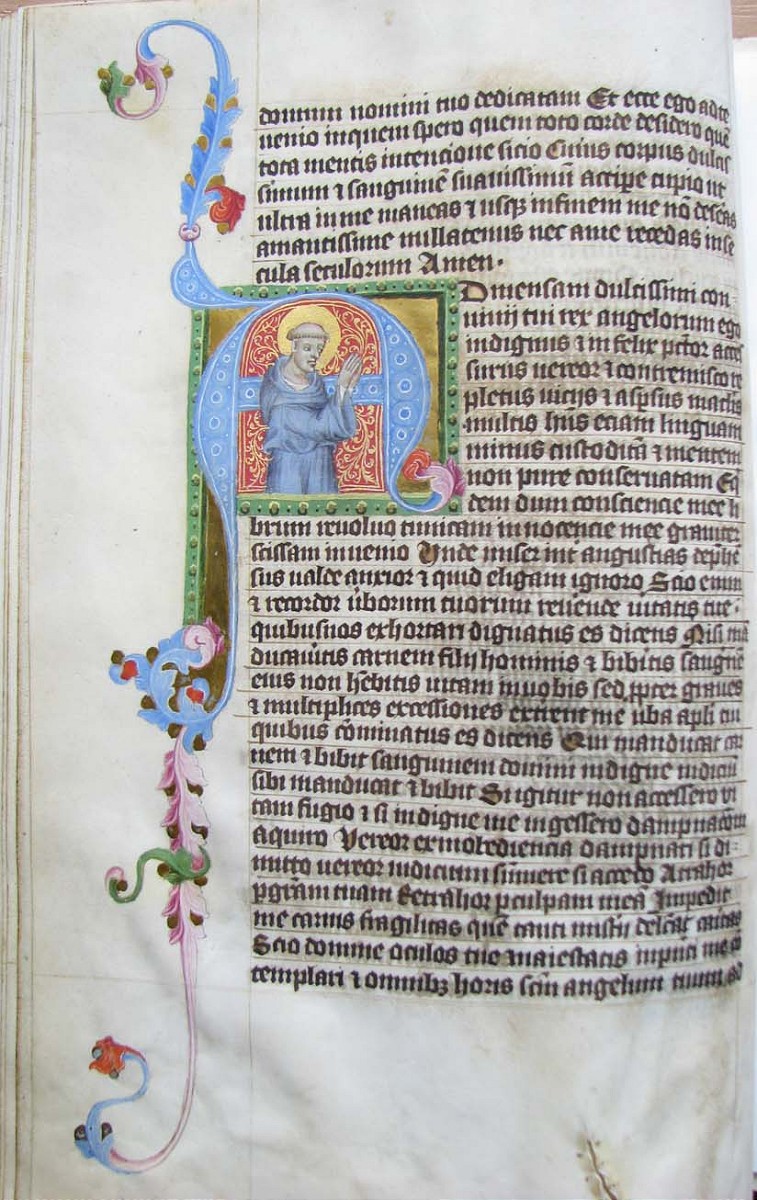 domini nomini tuo dedicatam Et ecce ego ad te
uenio in quem spero quem toto corde desidero quē
tota mentis intencione sicio Cuius corpus dulcis
simum ⁊ sanguinē suauissimū accipe cupio ut
ultra in me maneas ⁊ usqꝫ in finem me nō deseras
amantissime nullatenus nec a me recedas in se
cula seculorum Amen ·
A
D mensam dulcissimi con
uiuij tui rex angelorum ego
indignus ⁊ infelix pctor acces
surus uereor ⁊ contremisco re
pletus uicijs ⁊ aspsus maclis
multis hns eciam linguam
minus custoditā ⁊ mentem
non pure conseruatam Eq
dem dum consciencie mee li
brum reuoluo tunicam innocencie mee grauiter
scissam inuenio Unde miser int angustias dephē
sus ualde anxior ⁊ quid eligam ignoro Scio enim
⁊ recordor ūborum tuorum reuende uitatis tue ·
quibus nos exhortari dignatus es dicens Nisi mā
ducaūitis carnem filij hominis ⁊ bibitis sanguīē
eius non hēbitis uitam in uobis sed ꝓpter graues
⁊ multiplices excessiones exterrent me uba apli tui
quibus cōminatus es dicens Qui manducat car
nem ⁊ bibit sanguinem domini indigne iudiciū
sibi manducat ⁊ bibit Si igitur non accessero vi
tam fugio ⁊ si indigne me ingessero dampnacōm
aquiro Vereor ex inobediencia dampnari si di
mitto uereor iudicium sumere si accedo Attrahor
ꝑ grām tuam Retrahor ꝑ culpam meā Impedit
me carnis fragilitas quē tanti misterij delcāt caritas
Scio domine oculos tue maiestatis inpūci me cō
templari ⁊ omnibꝫ horis scm̄ angelum tuum ad